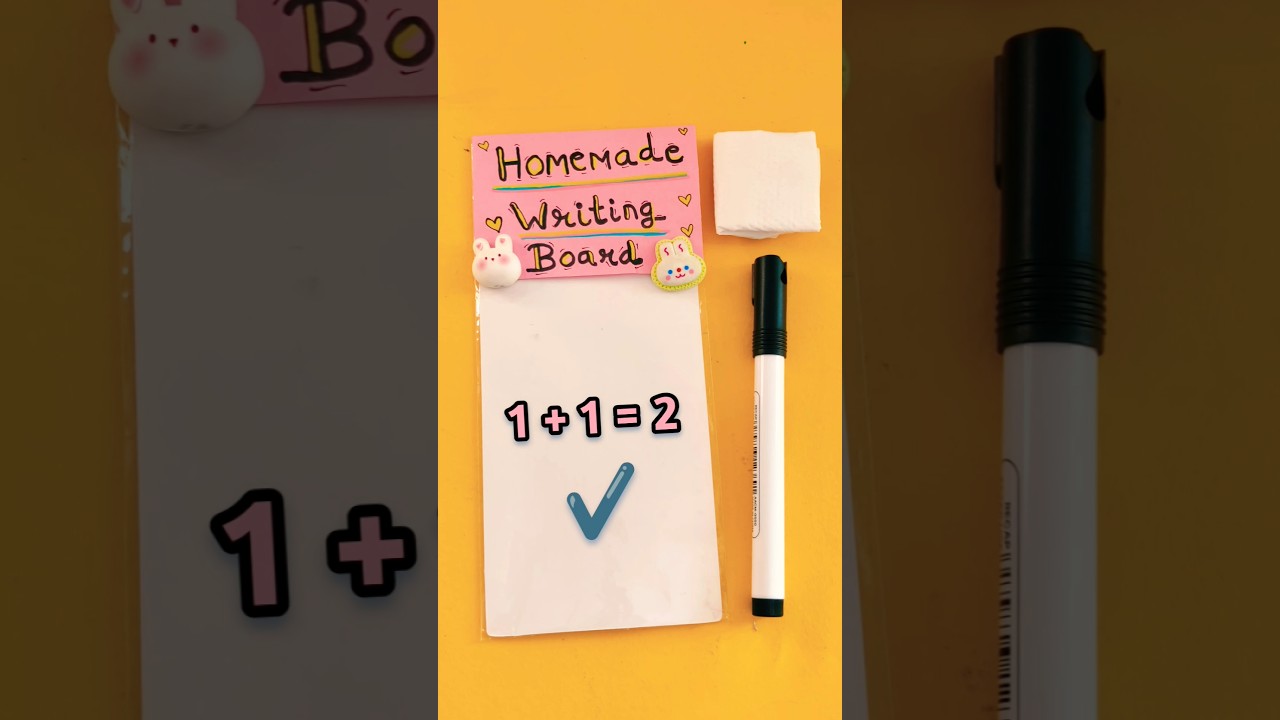 Homemade
Writing
Board
1 + 1 = 2
Bo
1 +